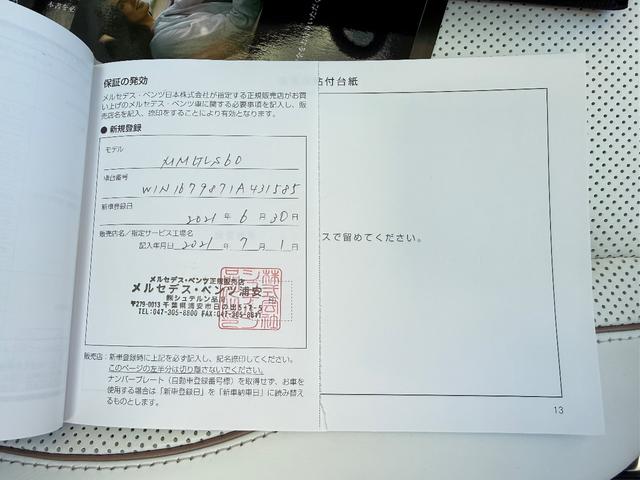 保証の発効
メルセデス・ベンツ日本株式会社が指定する正規販売店がお買
い上げのメルセデス・ベンツ車に関する必要事項を記入し、販
売店名を記入、捺印をすることにより有効となります。
● 新規登録
モデル
MMGLS60
車台番号
W1N1679871A431585
新車登録日
2021 年 6 月 30 日
販売店名/指定サービス工場名
記入年月日 2021 年 7 月 1 日
メルセデス・ベンツ正規販売店
メルセデス・ベンツ浦安
㈱シュテルン品川
〒279-0013 千葉県浦安市日の出5-7-5
TEL:047-305-8800 FAX:047-305-8811
販売店:新車登録時に上記を必ず記入し、記名捺印してください。
このページの左半分は切り離さないでください。
ナンバープレート(自動車登録番号標)を取得せず、お車を
使用する場合は「新車登録日」を「新車納車日」に読み替え
るものとします。
付台紙
スで留めてください。
13